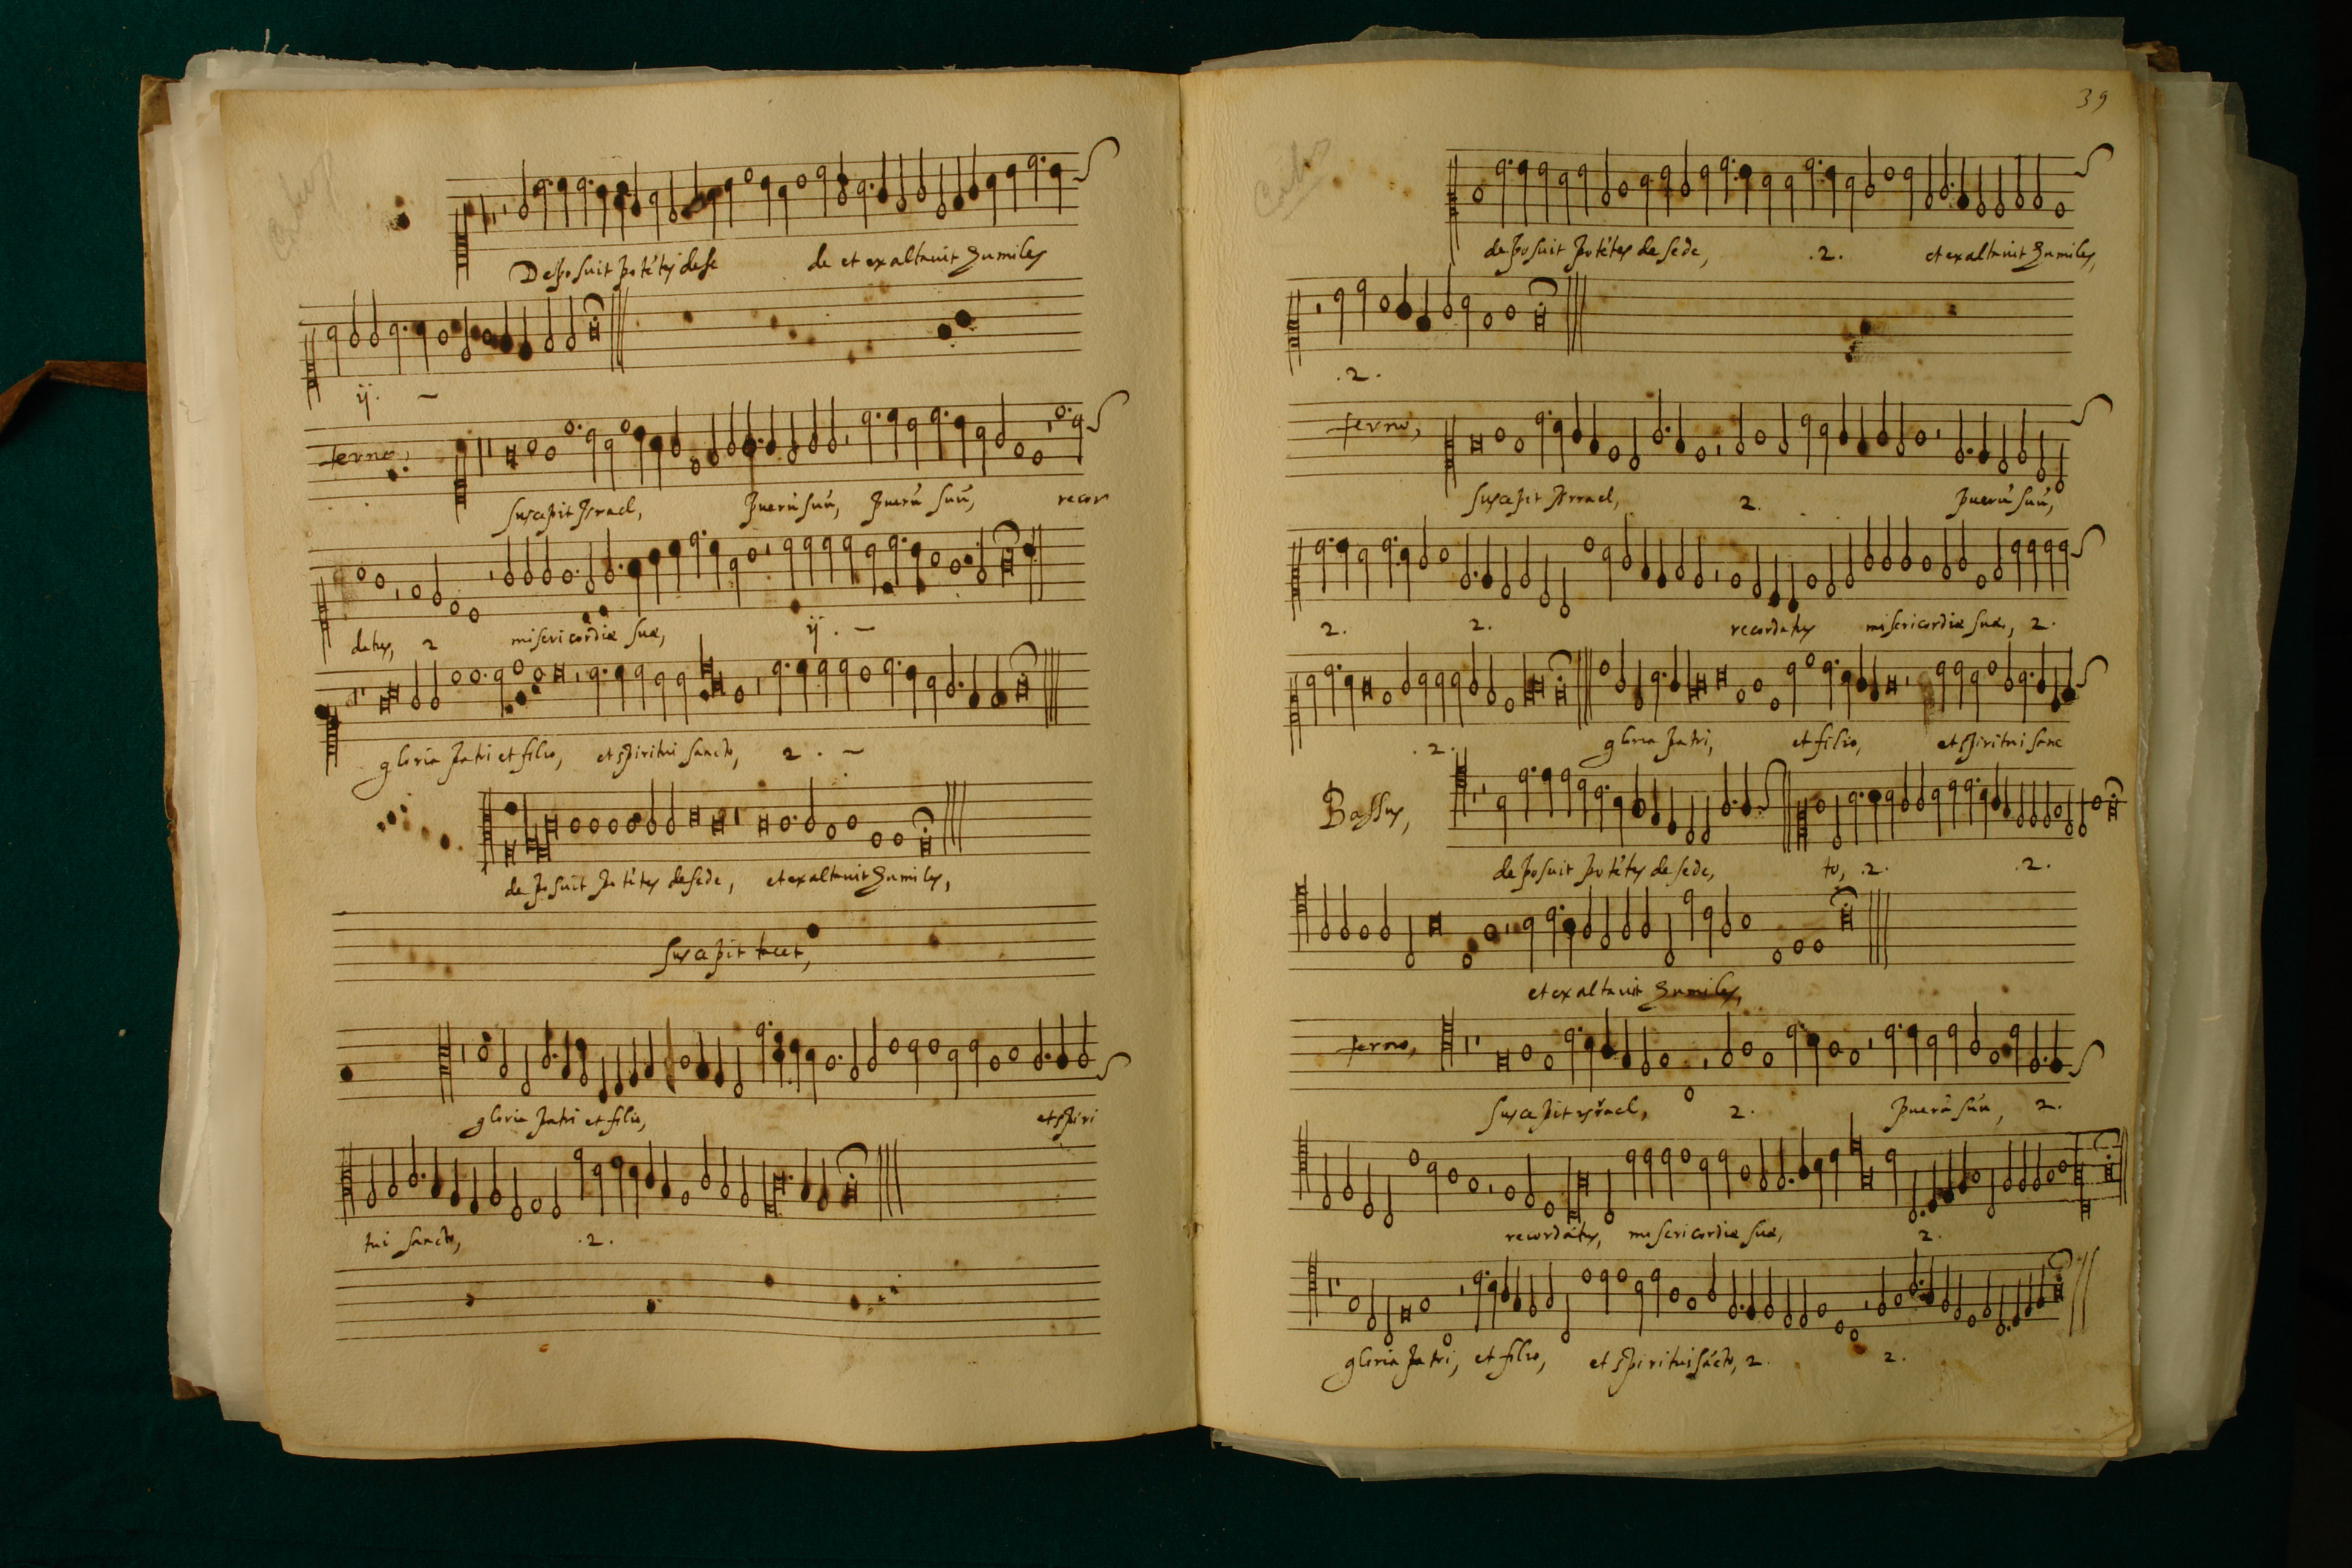 Deposuit potétes dese de et exaltavit humiles
ij.
terno,
suscepit Israel, puerú suú, puerú suú, recor
datus, 2 misericordiæ suæ, ij.
gloria patri et filio, et spiritui sancto, 2.
deposuit potétes desede, et exaltavit humiles,
suscepit tacet,
gloria patri et filio, et spiri
tui sancto, .2.
39
deposuit potétes de sede, .2. et exaltavit humiles,
.2.
terno,
suscepit Israel, 2. puerú suú,
2. 2. recordatus misericordiæ suæ, 2.
.2. gloria patri, et filio, et spiritui sanc
Bassus,
deposuit potétes de sede, to, .2. .2.
et exaltavit humiles,
terno,
suscepit israel, 2. puerú suú, 2.
recordatus, misericordiæ suæ, 2.
gloria patri, et filio, et spiritui sácto, 2. 2.